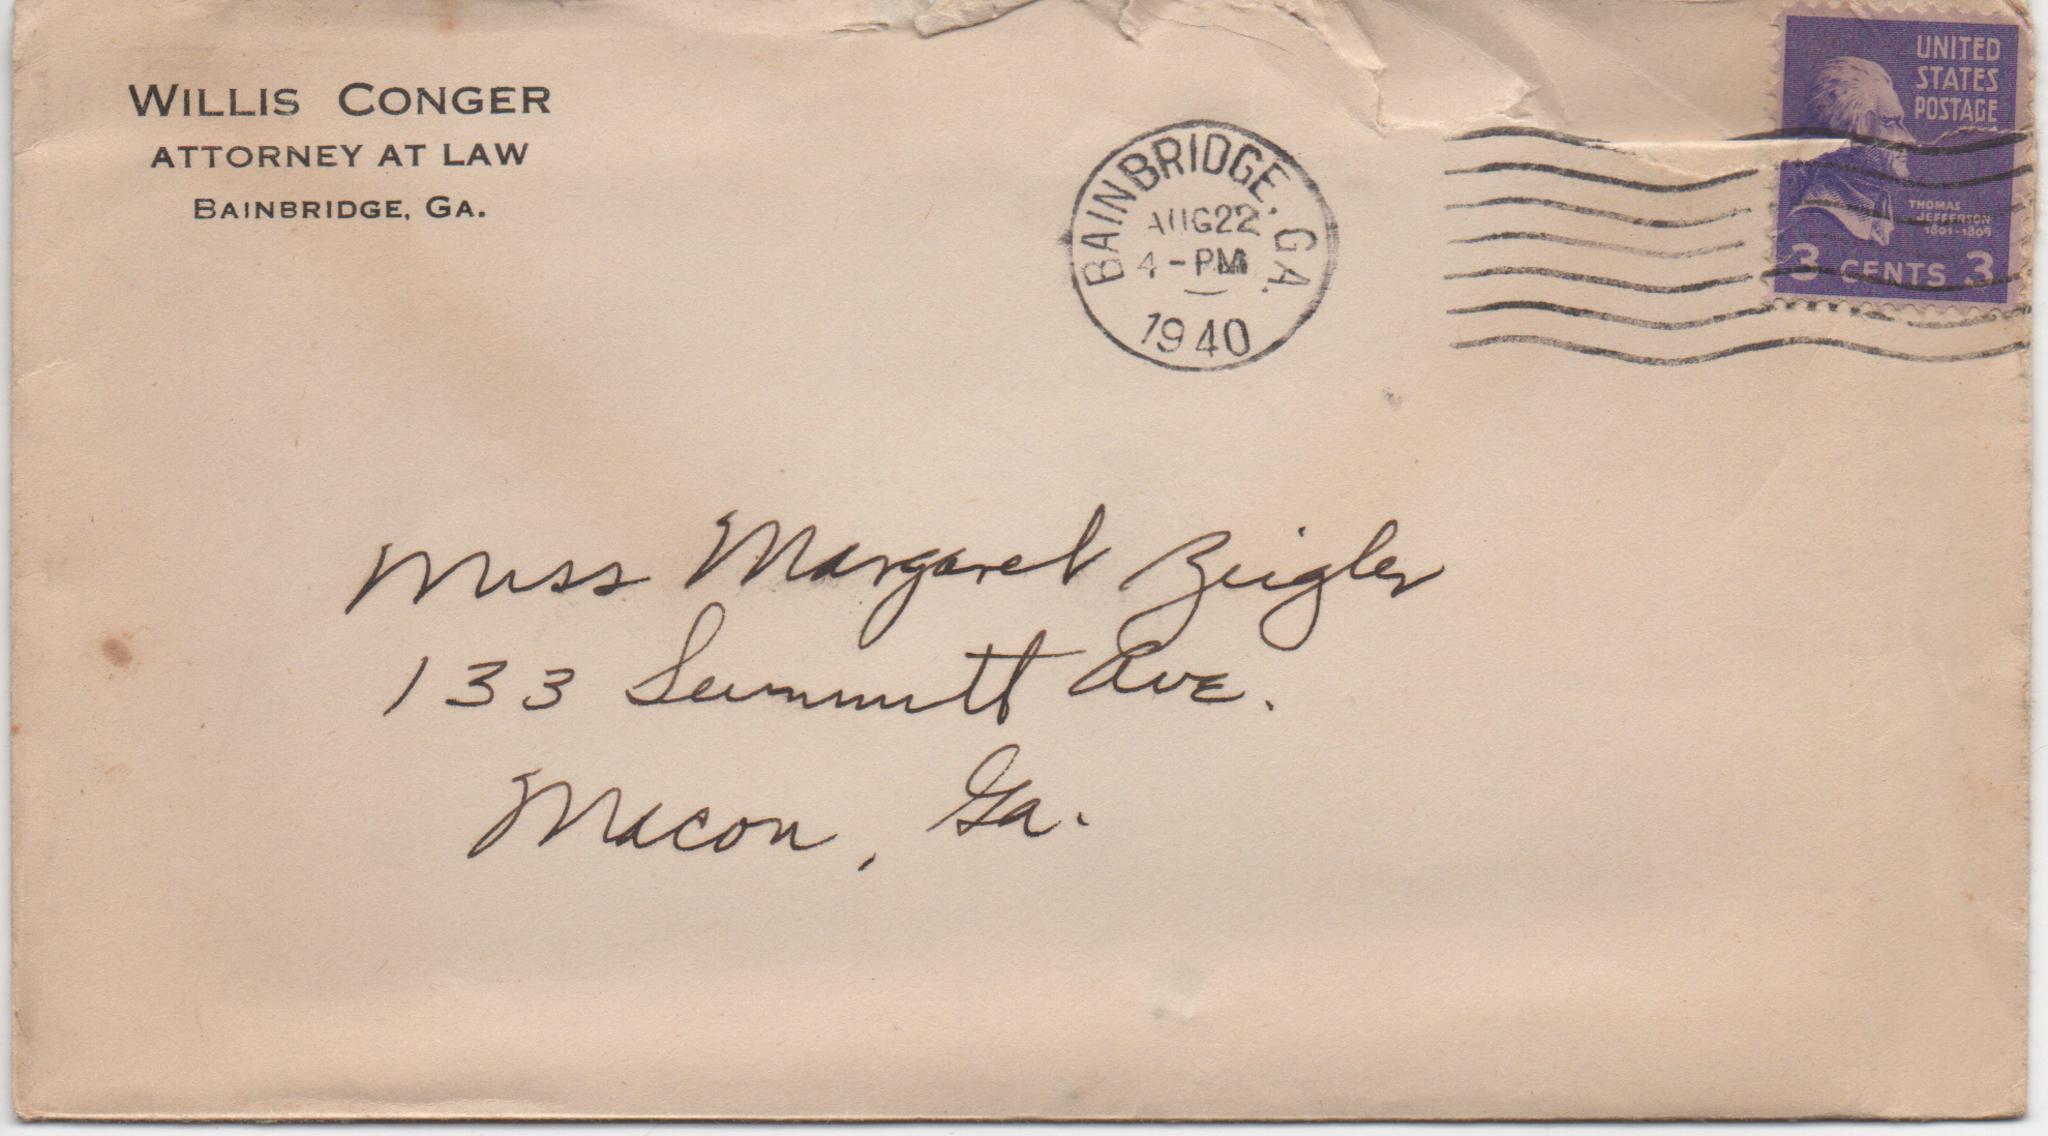 WILLIS CONGER
ATTORNEY AT LAW
BAINBRIDGE, GA.
BAINBRIDGE, GA.
AUG 22
4-PM
1940
UNITED
STATES
POSTAGE
THOMAS
JEFFERSON
1801-1809
3 CENTS 3
Miss Margaret Zeigler
133 Summitt Ave.
Macon, Ga.